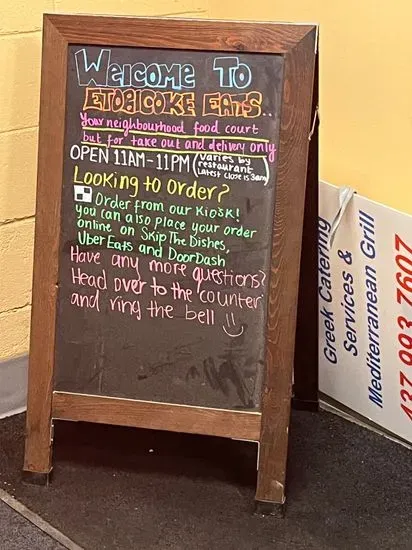 WELCOME TO
ETOBICOKE EATS..
Your neighbourhood food court
but for take out and delivery only
OPEN 11AM-11PM (varies by restaurant Latest close is 3am)
Looking to order?
Order from our Kiosk!
you can also place your order
online on Skip The Dishes,
Uber Eats and DoorDash
Have any more questions?
Head over to the counter
and ring the bell
Greek Catering
Services &
Mediterranean Grill
437 993 7607